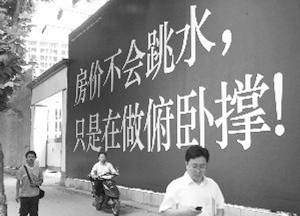 房价不会跳水，
只是在做俯卧撑！